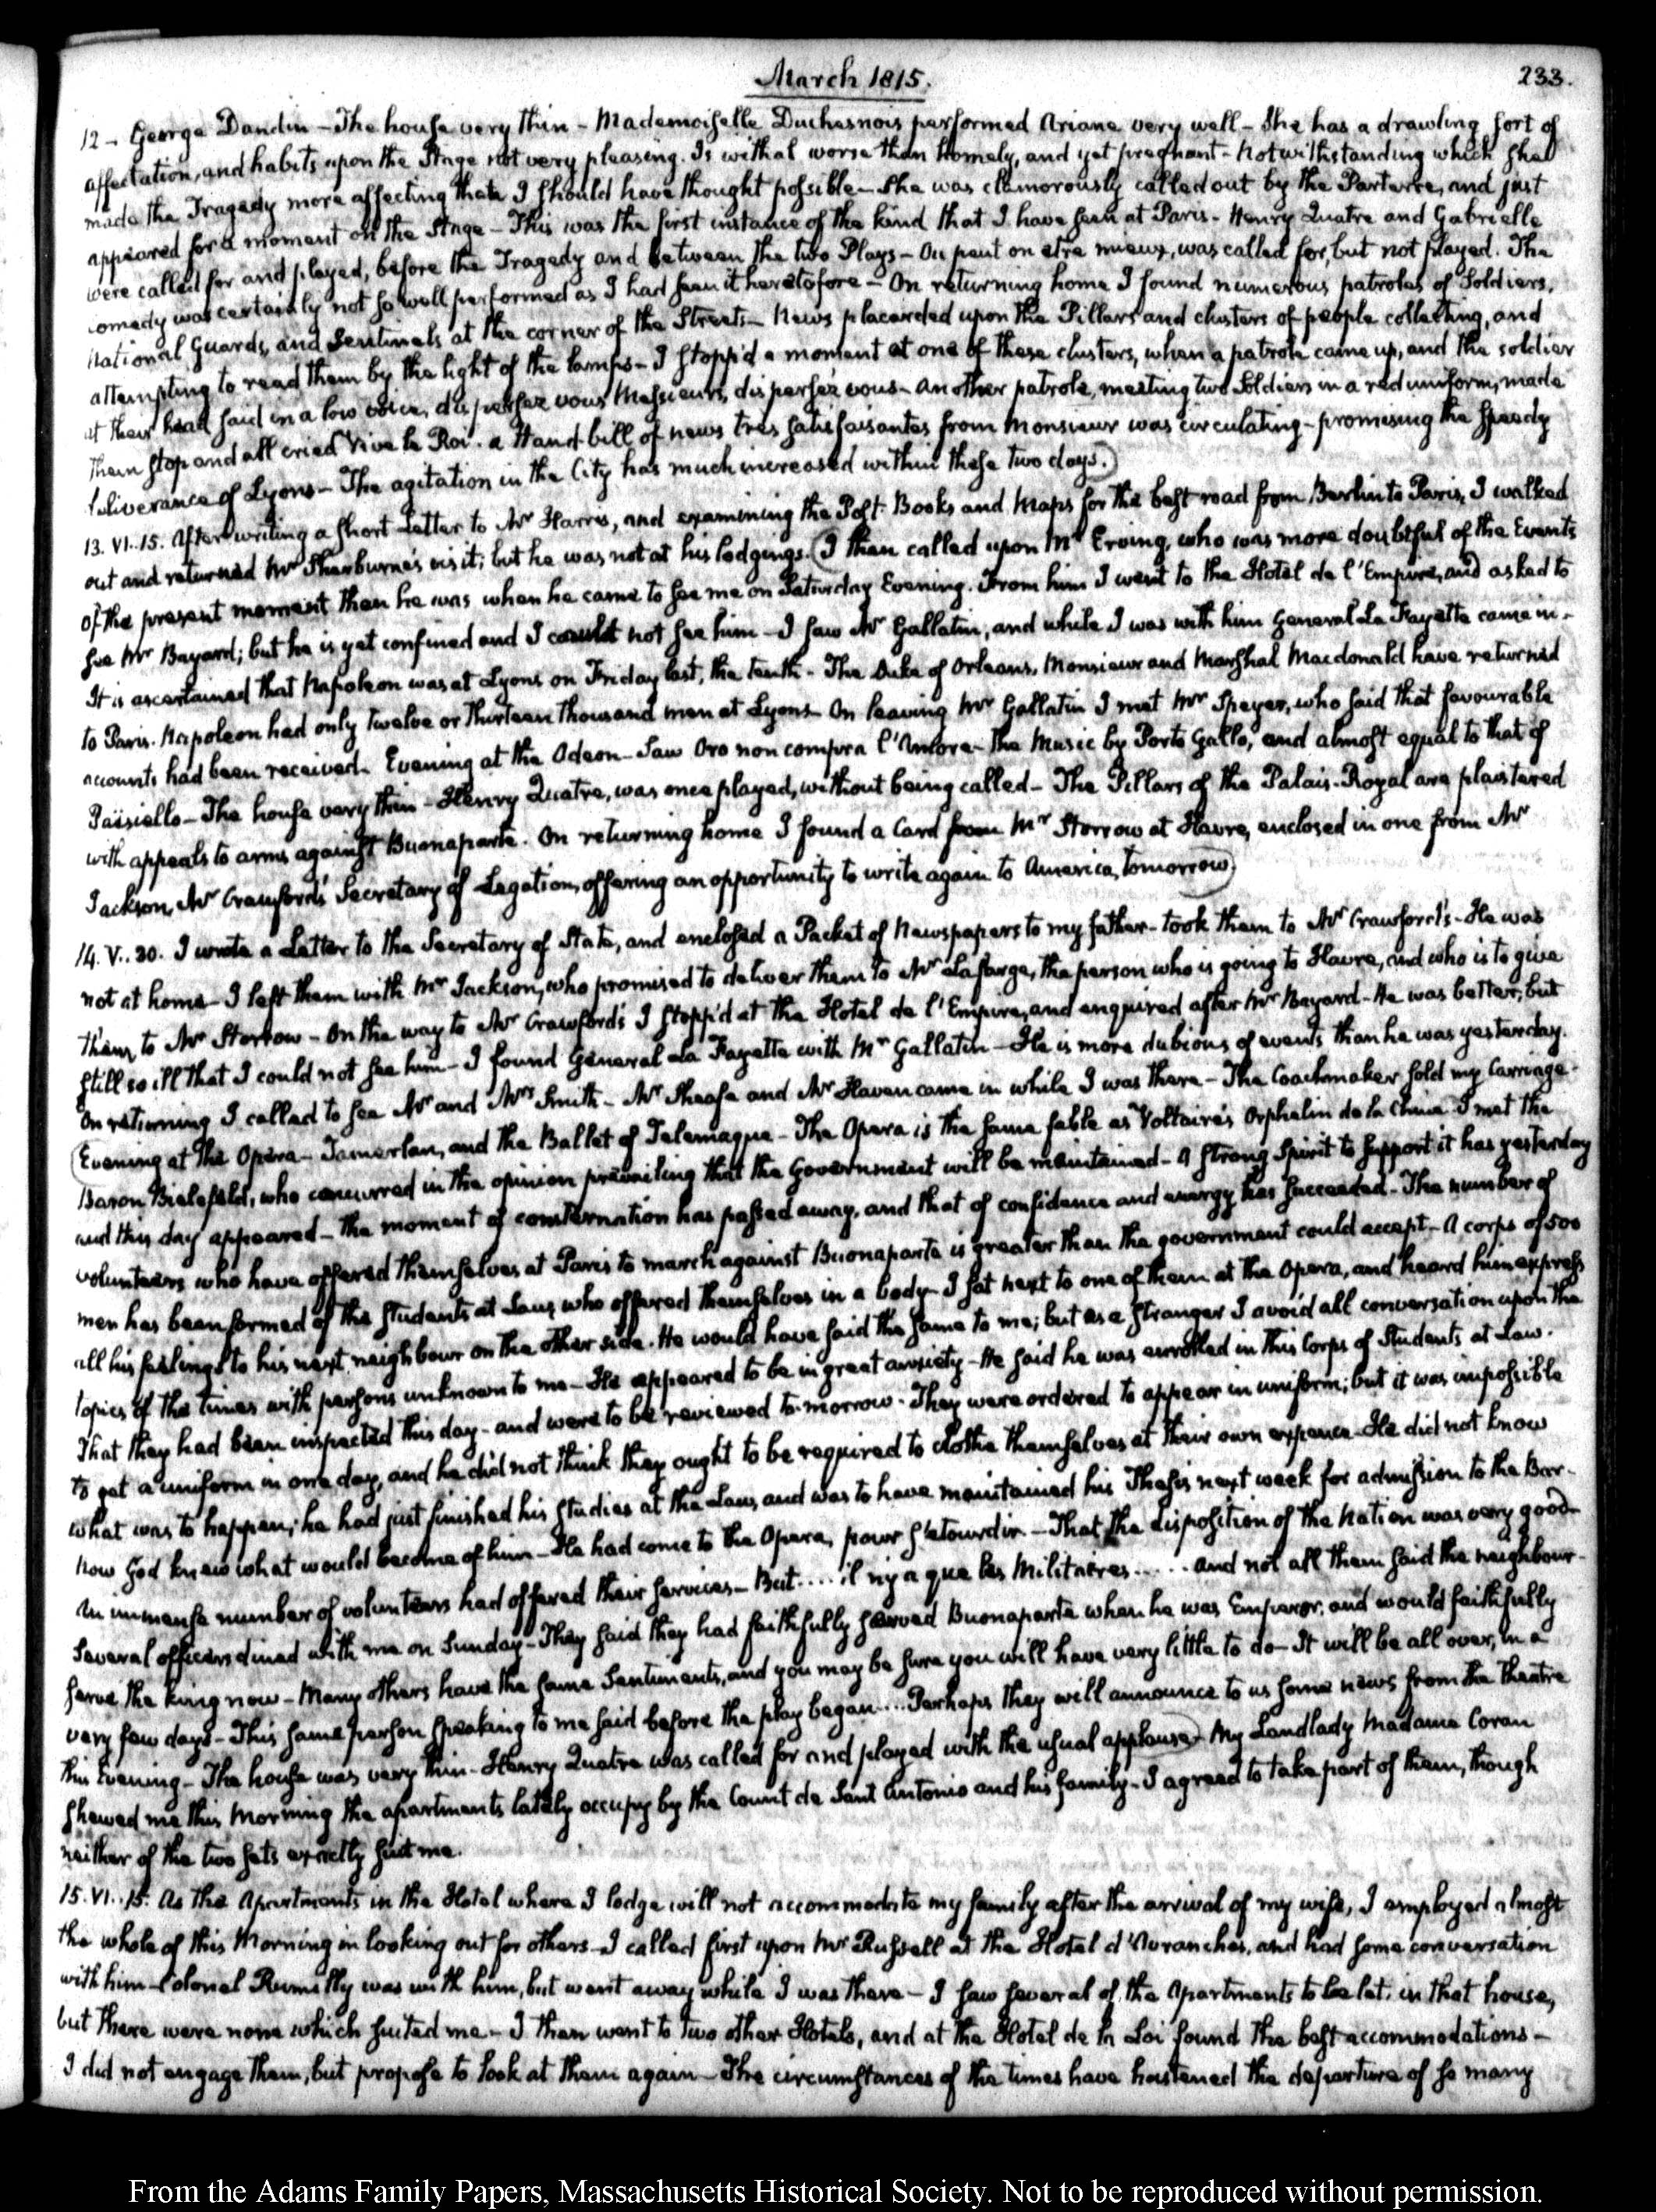 March 1815.
233.
12 - George Dandin - The house very thin - Mademoiselle Duchesnois performed Ariane very well - She has a drawling sort of
affectation, and habits upon the Stage not very pleasing. Is withal worse than homely, and yet pregnant - Notwithstanding which she
made the Tragedy more affecting than I should have thought possible - She was clamorously called out by the Parterre, and just
appeared for a moment on the Stage - This was the first instance of the kind that I have seen at Paris - Henry Quatre and Gabrielle
were called for and played, before the Tragedy and between the two Plays - Ou peut on etre mieux, was called for, but not played. The
comedy was certainly not so well performed as I had seen it heretofore - On returning home I found numerous patroles of Soldiers,
National Guards, and Sentinels at the corner of the Streets - News placarded upon the Pillars and clusters of people collecting, and
attempting to read them by the light of the lamps - I stopp'd a moment at one of these clusters, when a patrole came up, and the soldier
at their head said in a low voice, dispersez vous Messieurs, dispersez vous - Another patrole, meeting two Soldiers in a red uniform, made
them stop and all cried Vive le Roi. a Hand-bill of news tres satisfaisantes from Monsieur was circulating - promising the speedy
deliverance of Lyons - The agitation in the City has much increased within these two days.)
13. VI..15. After writing a short Letter to Mr Harris, and examining the Post-Books and Maps for the best road from Berlin to Paris, I walked
out and returned Mr Sherburne's visit; but he was not at his lodgings. (I then called upon Mr Erving, who was more doubtful of the Events
of the present moment than he was when he came to see me on Saturday Evening. From him I went to the Hotel de l'Empire, and asked to
see Mr Bayard; but he is yet confined and I could not see him - I saw Mr Gallatin, and while I was with him General La Fayette came in -
It is ascertained that Napoleon was at Lyons on Friday last, the tenth - The Duke of Orleans, Monsieur and Marshal Macdonald have returned
to Paris. Napoleon had only twelve or thirteen thousand men at Lyons - On leaving Mr Gallatin I met Mr Speyer, who said that favourable
accounts had been received. Evening at the Odeon - Saw Oro non compra l'Amore - The Music by Porto Gallo, and almost equal to that of
Paisiello - The house very thin - Henry Quatre, was once played, without being called - The Pillars of the Palais-Royal are plaistered
with appeals to arms against Buonaparte. On returning home I found a Card from Mr Storrow at Havre, enclosed in one from Mr
Jackson, Mr Crawford's Secretary of Legation, offering an opportunity to write again to America, tomorrow)
14. V..30. I wrote a Letter to the Secretary of State, and enclosed a Packet of Newspapers to my father - took them to Mr Crawford's - He was
not at home - I left them with Mr Jackson, who promised to deliver them to Mr Lafarge, the person who is going to Havre, and who is to give
them to Mr Storrow - On the way to Mr Crawford's I stopp'd at the Hotel de l'Empire, and enquired after Mr Bayard - He was better, but
still so ill that I could not see him - I found General La Fayette with Mr Gallatin - He is more dubious of events than he was yesterday.
On returning I called to see Mr and Mrs Smith - Mr Sheafe and Mr Haven came in while I was there - The Coachmaker sold my Carriage -
(Evening at the Opera - Tamerlan, and the Ballet of Telemaque - The Opera is the same fable as Voltaire's Orphelin de la Chine - I met the
Baron Bielefeld, who concurred in the opinion prevailing that the Government will be maintained - A strong Spirit to support it has yesterday
and this day appeared - The moment of consternation has passed away, and that of confidence and energy has succeeded - The number of
volunteers who have offered themselves at Paris to march against Buonaparte is greater than the government could accept - A corps of 500
men has been formed of the students at Law, who offered themselves in a body - I sat next to one of them at the Opera, and heard him express
all his feelings to his next neighbour on the other side. He would have said the same to me; but as a stranger I avoid all conversation upon the
topics of the times with persons unknown to me - He appeared to be in great anxiety - He said he was enrolled in this Corps of Students at Law.
That they had been inspected this day - and were to be reviewed to-morrow. They were ordered to appear in uniform; but it was impossible
to get a uniform in one day, and he did not think they ought to be required to clothe themselves at their own expence - He did not know
what was to happen; he had just finished his studies at the Law, and was to have maintained his Thesis next week for admission to the Bar -
now God knew what would become of him - He had come to the Opera, pour s'etourdir - That the disposition of the Nation was very good -
An immense number of volunteers had offered their services - But.... il n'y a que les Militaires..... and not all them said the neighbour -
Several officers dined with me on Sunday - They said they had faithfully served Buonaparte when he was Emperor, and would faithfully
serve the king now - Many others have the same Sentiments, and you may be sure you will have very little to do - It will be all over, in a
very few days - This same person speaking to me said before the play began.... Perhaps they will announce to us some news from the Theatre
this Evening - The house was very thin - Henry Quatre was called for and played with the usual applause) My Landlady Madame Coran
shewed me this Morning the apartments lately occupy by the Count de Sant Antonio and his family - I agreed to take part of them, though
neither of the two sets exactly suit me.
15. VI..15. As the Apartments in the Hotel where I lodge will not accommodate my family after the arrival of my wife, I employed almost
the whole of this Morning in looking out for others - I called first upon Mr Russell at the Hotel d'Avranches, and had some conversation
with him - Colonel Rumilly was with him, but went away while I was there - I saw several of the Apartments to be let in that house,
but there were none which suited me - I then went to two other Hotels, and at the Hotel de la Loi found the best accommodations -
I did not engage them, but propose to look at them again - The circumstances of the times have hastened the departure of so many
From the Adams Family Papers, Massachusetts Historical Society. Not to be reproduced without permission.